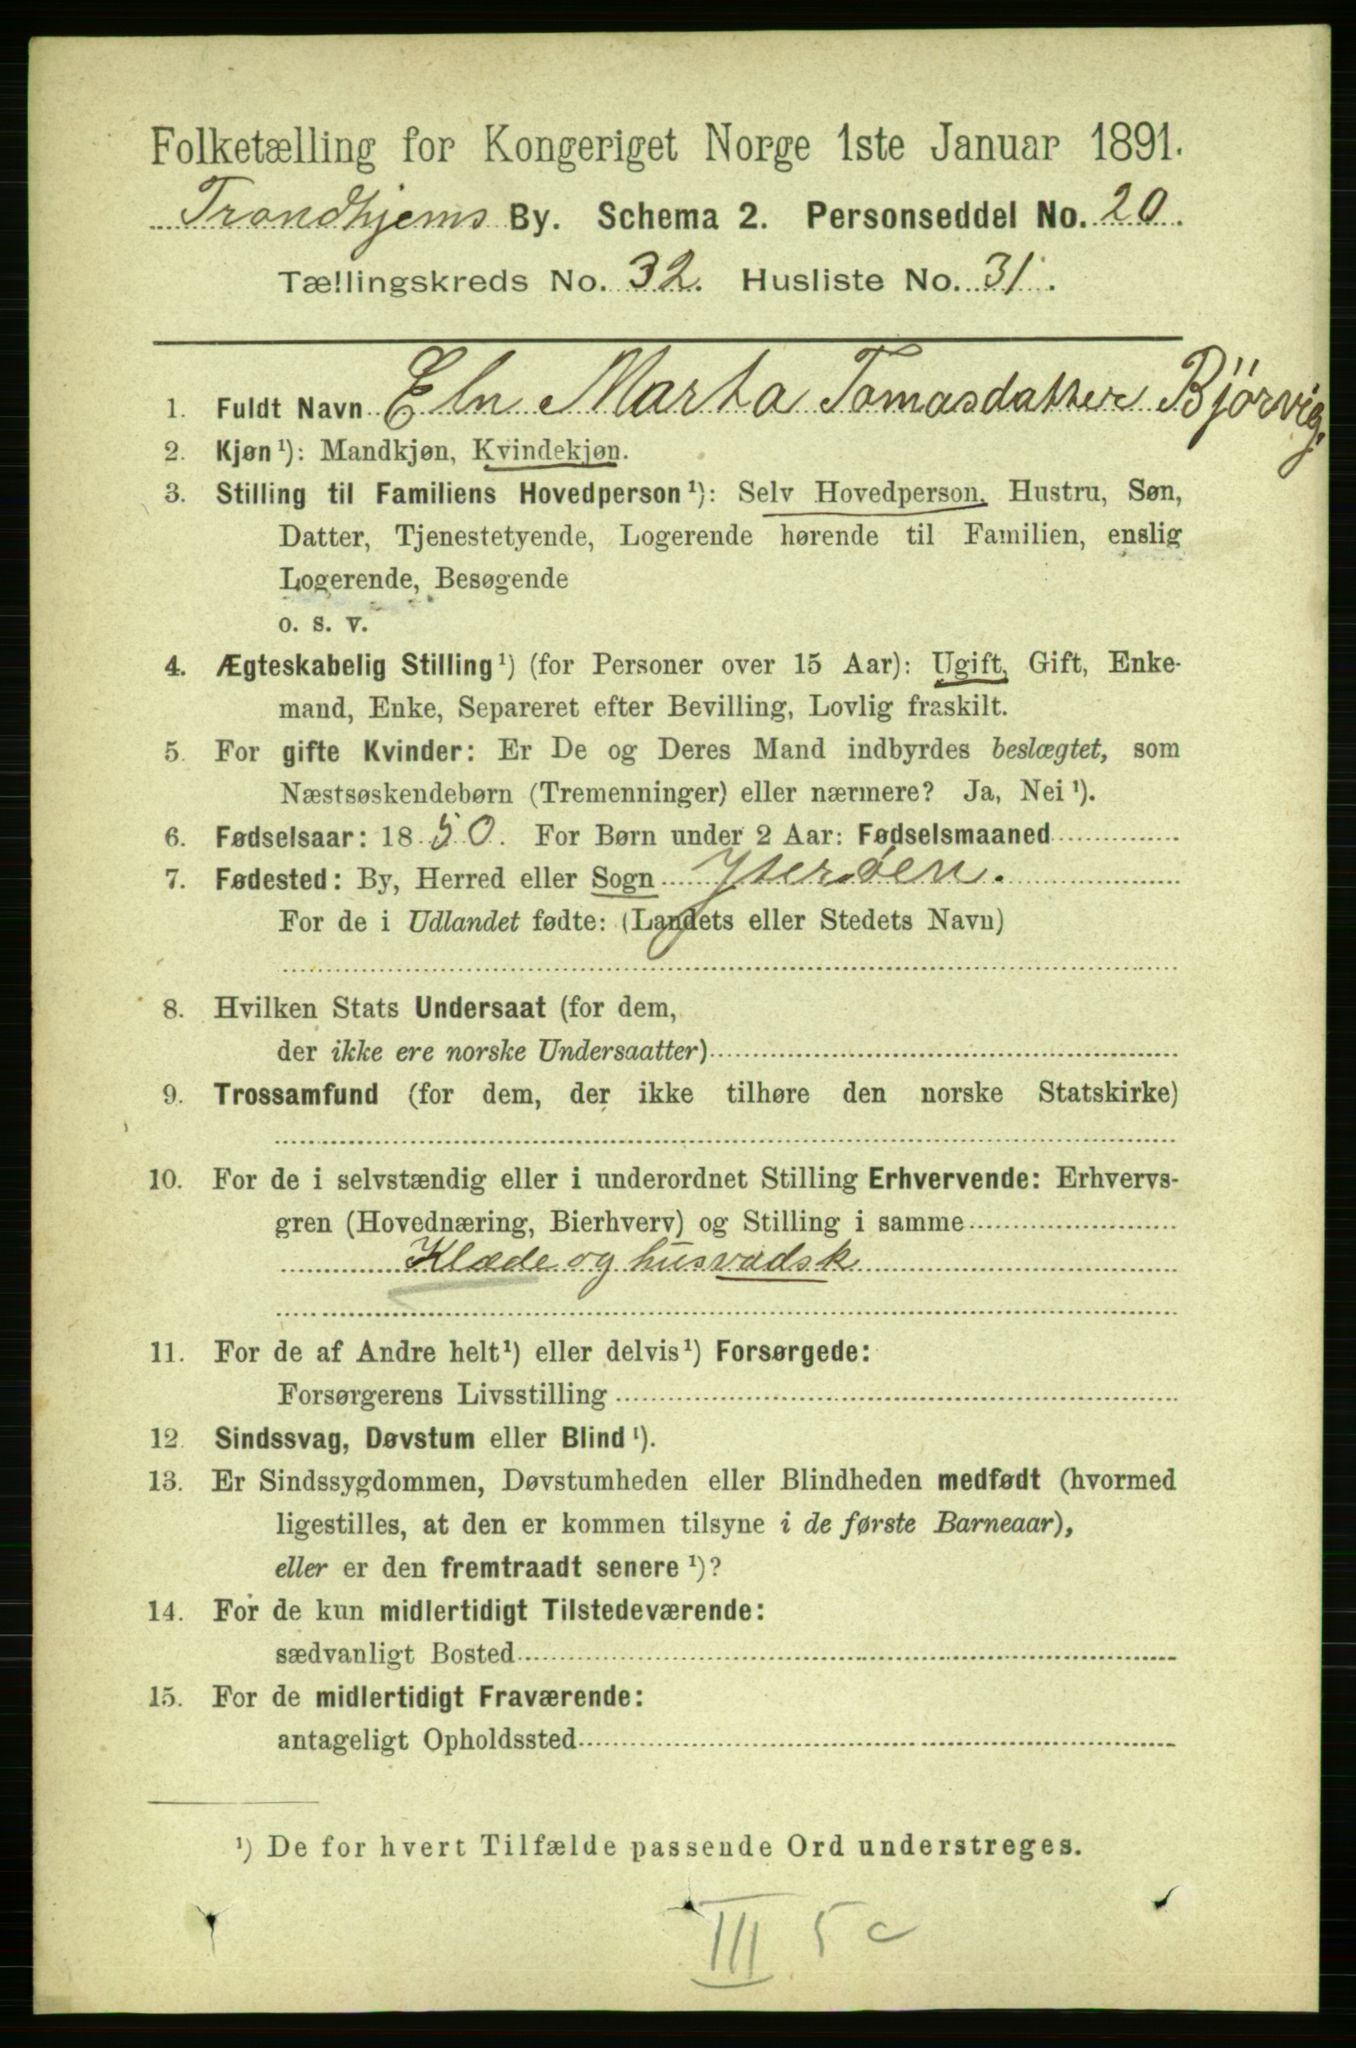 Folketælling for Kongeriget Norge 1ste Januar 1891.
Trondhjems By. Schema 2. Personseddel No. 20.
Tællingskreds No. 32. Husliste No. 31.
1. Fuldt Navn Eln Marta Tomasdatter Bjørvig.
2. Kjøn¹): Mandkjøn, Kvindekjøn.
3. Stilling til Familiens Hovedperson¹): Selv Hovedperson, Hustru, Søn,
Datter, Tjenestetyende, Logerende hørende til Familien, enslig
Logerende, Besøgende
o. s. v.
4. Ægteskabelig Stilling¹) (for Personer over 15 Aar): Ugift, Gift, Enke-
mand, Enke, Separeret efter Bevilling, Lovlig fraskilt.
5. For gifte Kvinder: Er De og Deres Mand indbyrdes beslægtet, som
Næstsøskendebørn (Tremenninger) eller nærmere? Ja, Nei¹).
6. Fødselsaar: 1850. For Børn under 2 Aar: Fødselsmaaned
7. Fødested: By, Herred eller Sogn Yterøen.
For de i Udlandet fødte: (Landets eller Stedets Navn)
8. Hvilken Stats Undersaat (for dem,
der ikke ere norske Undersaatter)
9. Trossamfund (for dem, der ikke tilhøre den norske Statskirke)
10. For de i selvstændig eller i underordnet Stilling Erhvervende: Erhvervs-
gren (Hovednæring, Bierhverv) og Stilling i samme
Klæde og husvadsk
11. For de af Andre helt¹) eller delvis¹) Forsørgede:
Forsørgerens Livsstilling
12. Sindssvag, Døvstum eller Blind¹).
13. Er Sindssygdommen, Døvstumheden eller Blindheden medfødt (hvormed
ligestilles, at den er kommen tilsyne i de første Barneaar),
eller er den fremtraadt senere¹)?
14. For de kun midlertidigt Tilstedeværende:
sædvanligt Bosted
15. For de midlertidigt Fraværende:
antageligt Opholdssted
¹) De for hvert Tilfælde passende Ord understreges.
III 5 c